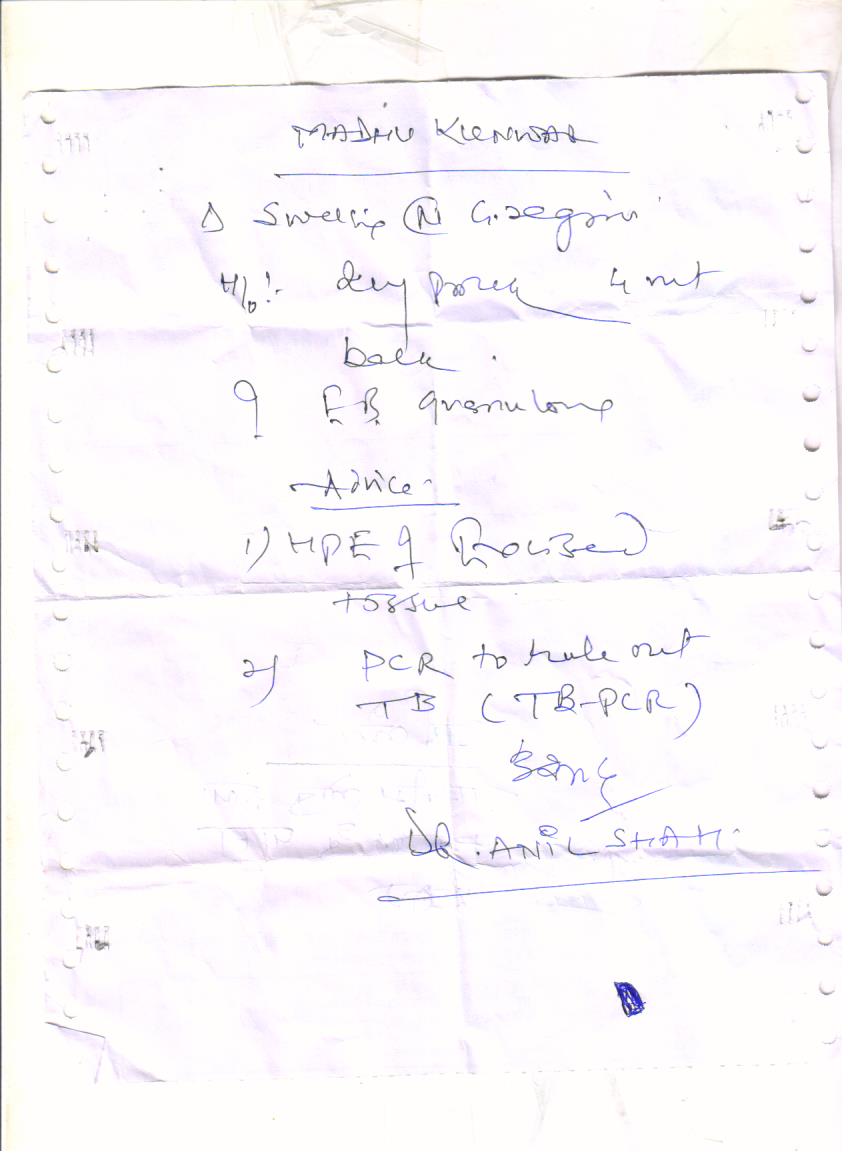 MADHU KUNWAR
Δ Swelling (N) G. region
H/o:- dry 4 mt
back.
? F.B. granuloma
Advice-
1) HPE of Excised
tissue
2) PCR to rule out
TB (TB-PCR)
DR. ANIL SHAH.